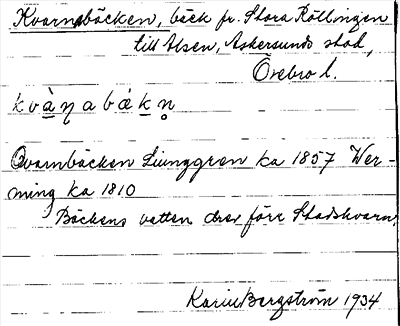 Kvarnabäcken, bäck fr. Stora Röllingen
till Alsen, Askersunds stad,
Örebro l.
kvàṇabákn̥
Qvarnbäcken Ljunggren ka 1857 Wer-
ming ka 1810
Bäckens vatten drev förr Stadskvarn.
Karin Bergström 1934